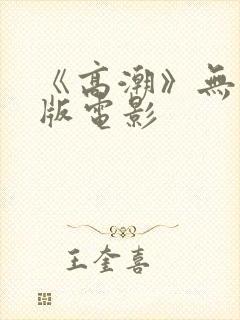 《高潮》無
版電影
王奎喜